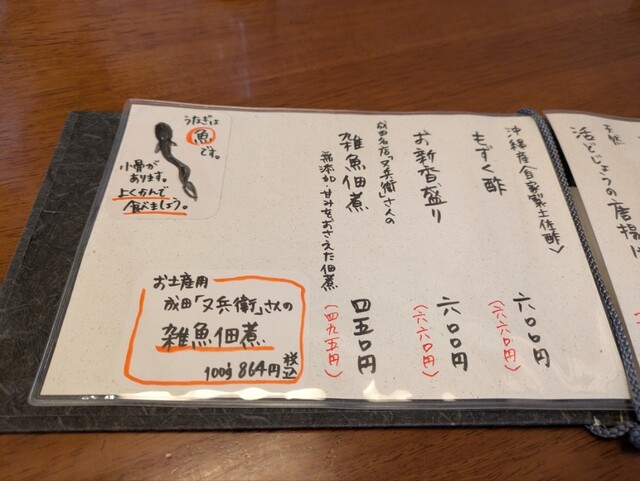 天然
活どじょうの唐揚げ
沖縄産〈自家製土佐酢〉
もずく酢
六〇〇円
(六六〇円)
お新香盛り
六〇〇円
(六六〇円)
成田名店「又兵衛」さんの
雑魚佃煮
無添加・甘みをおさえた佃煮
四五〇円
(四九五円)
うなぎは
魚
です。
小骨が
あります。
よくかんで
食べましょう。
お土産用
成田「又兵衛」さんの
雑魚佃煮
100g 864円税込